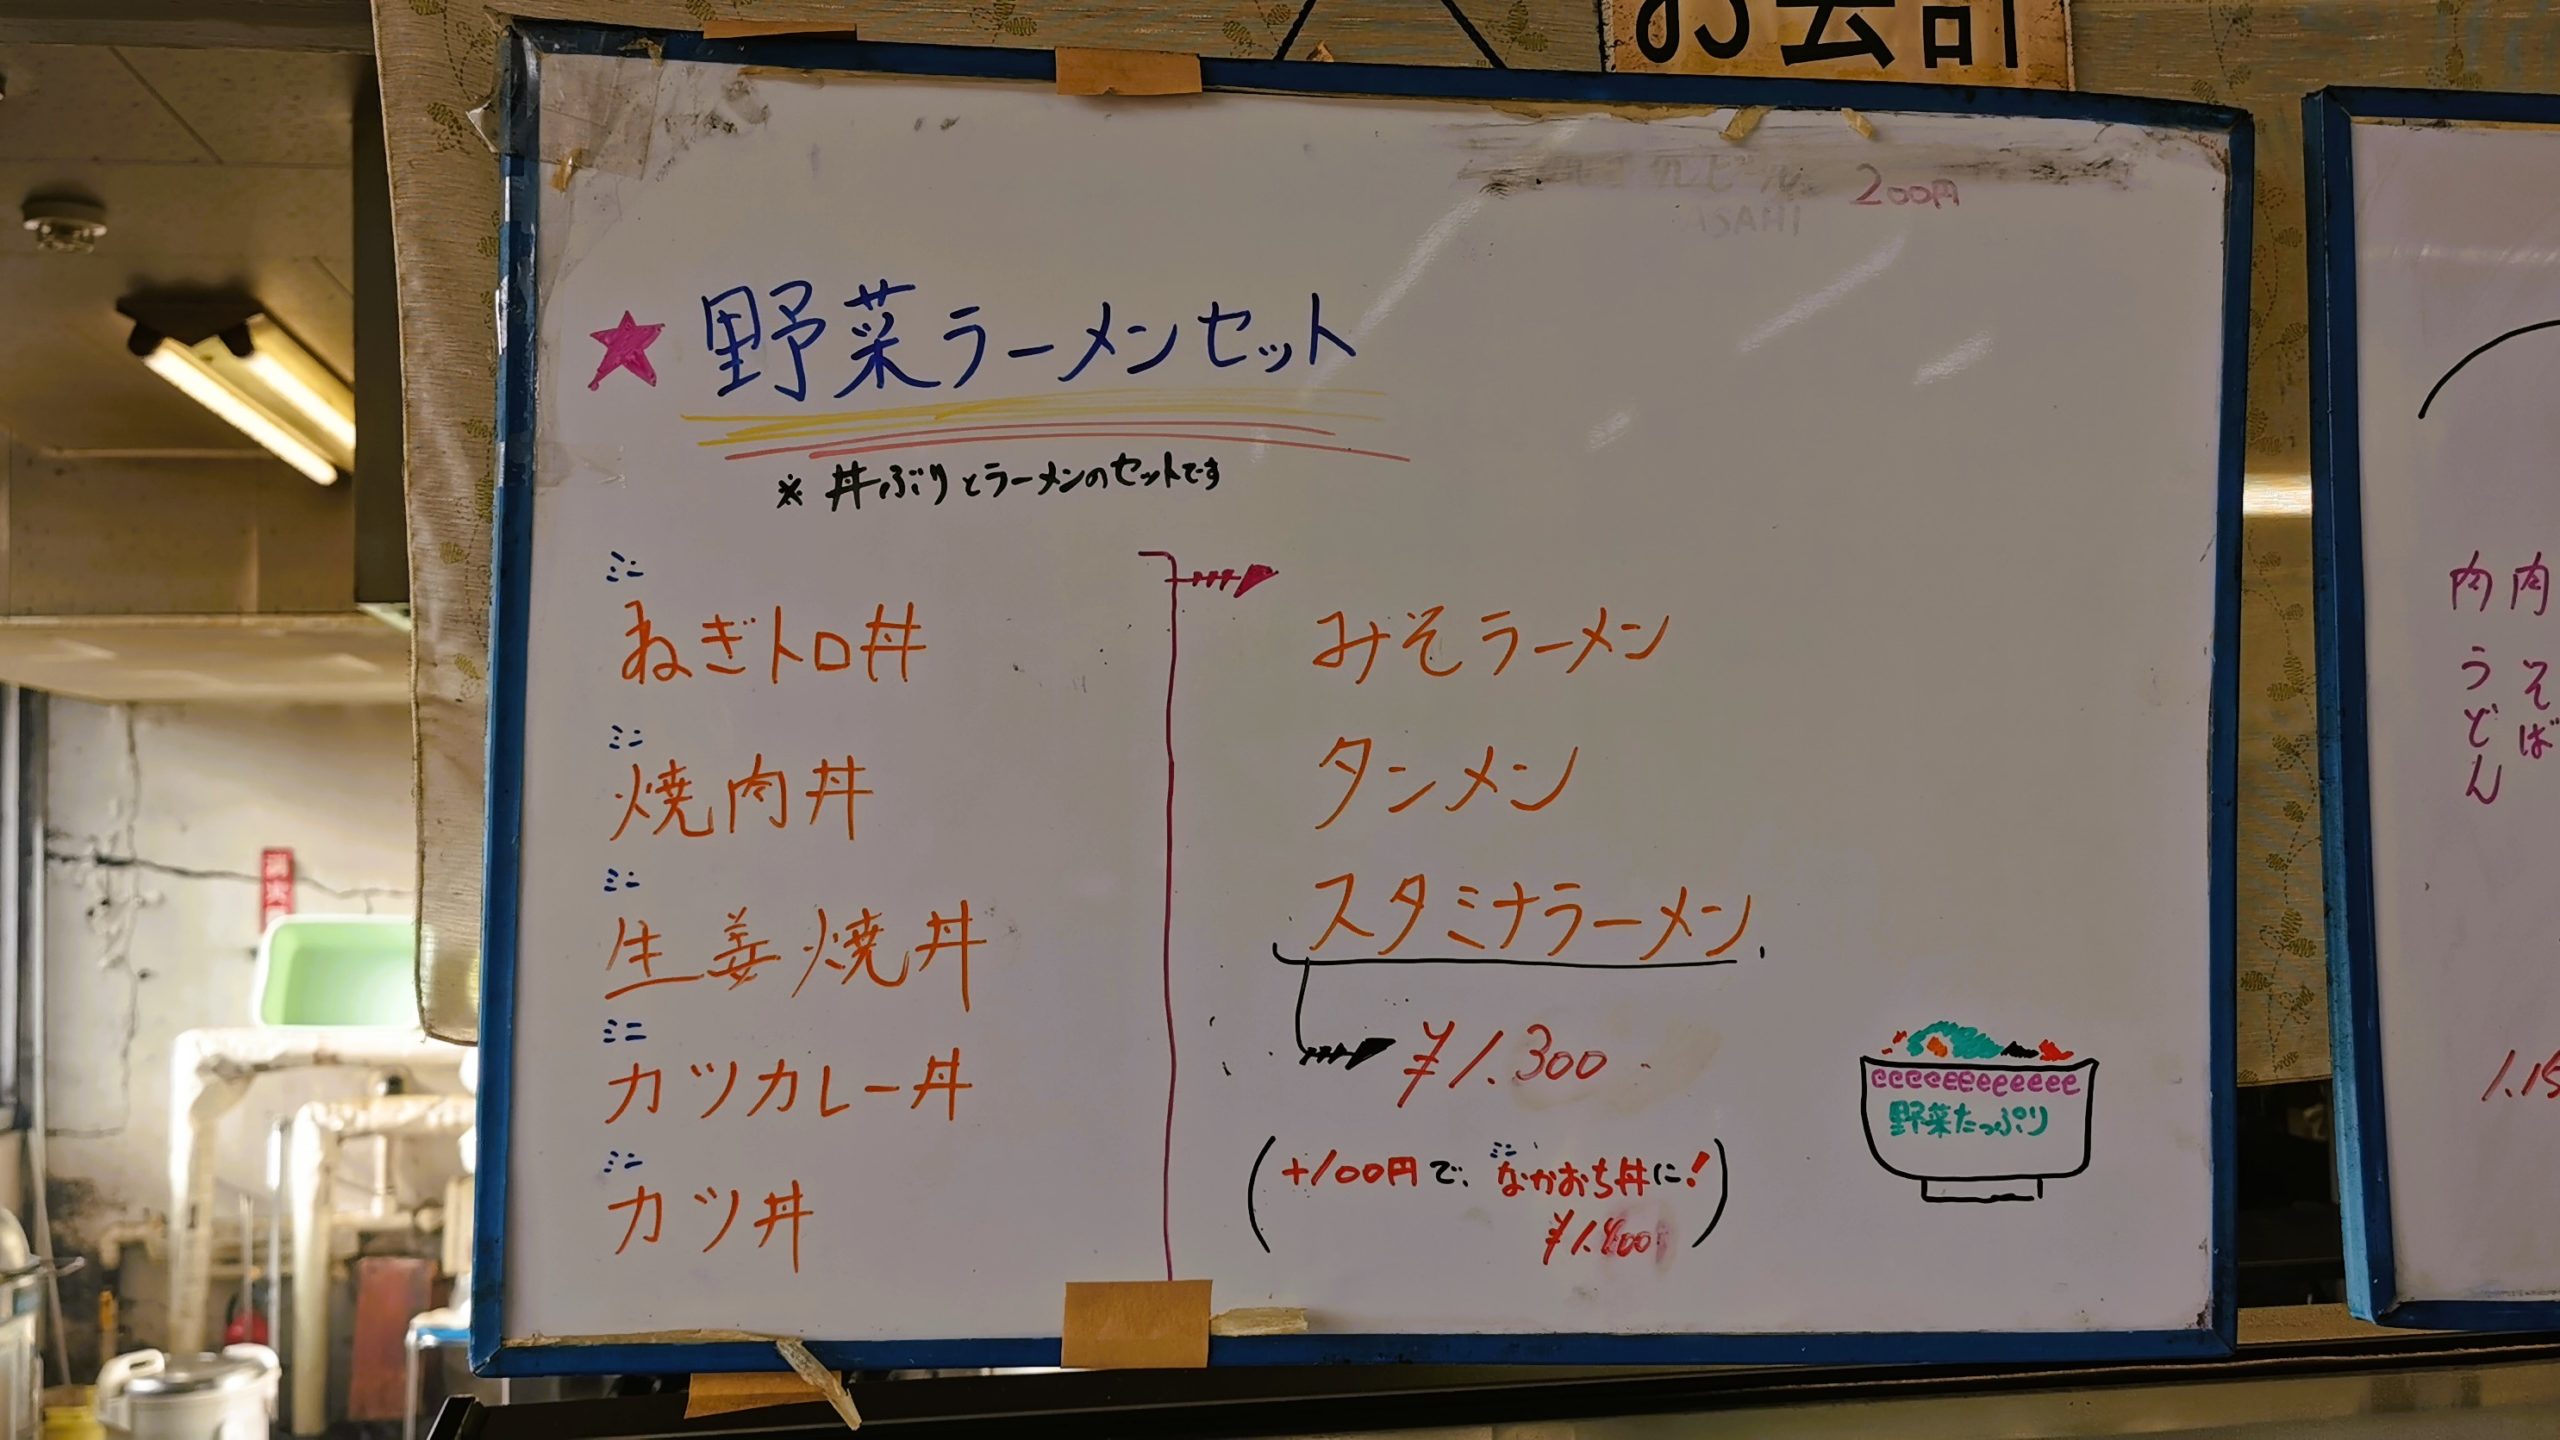 お会計
200円
ASAHI
★ 野菜ラーメンセット
※ 丼ぶりとラーメンのセットです
ミニ
ねぎトロ丼
ミニ
焼肉丼
ミニ
生姜焼丼
ミニ
カツカレー丼
ミニ
カツ丼
みそラーメン
タンメン
スタミナラーメン
¥1.300
(+100円で、ミニなかおち丼に!
¥1.400)
野菜たっぷり
肉そば
肉うどん